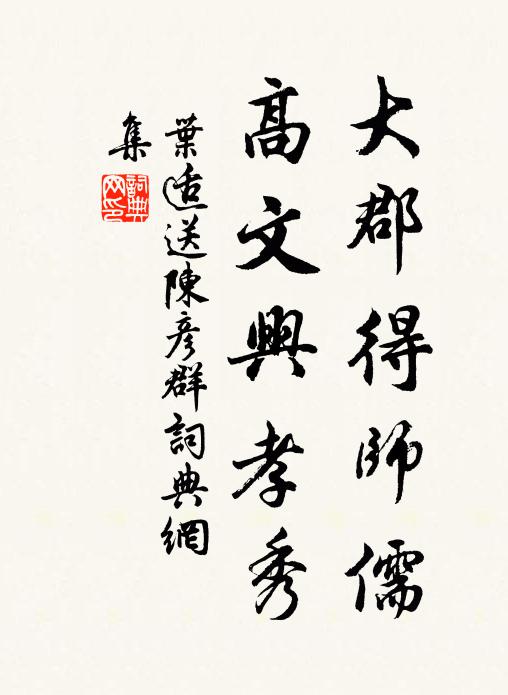 大郡得師儒
高文興孝秀
葉适送陳彦群詞典網
集
詞典网印